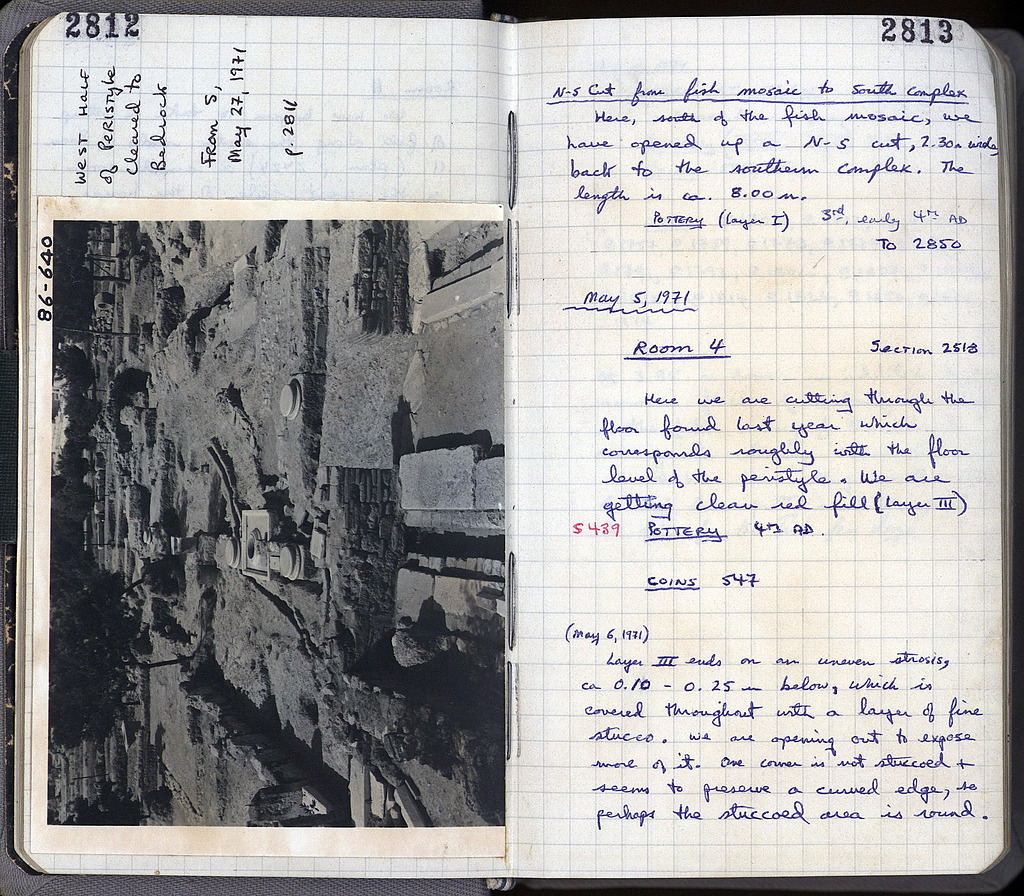 2812
West Half
of Peristyle
Cleared to
Bedrock
From S,
May 27, 1971
p. 2811
86-640
2813
N-S Cut from fish mosaic to South Complex
Here, south of the fish mosaic, we
have opened up a N-S cut, 2.30m wide,
back to the southern complex. The
length is ca. 8.00 m.
Pottery (Layer I) 3rd, early 4th AD
To 2850
May 5, 1971
Room 4 Section 2513
Here we are cutting through the
floor found last year which
corresponds roughly with the floor
level of the peristyle. We are
getting clean red fill (Layer III)
5439 Pottery 4th AD.
Coins 547
(May 6, 1971)
Layer III ends on an uneven strosis,
ca 0.10 - 0.25 m below, which is
covered throughout with a layer of fine
stucco. We are opening out to expose
more of it. One corner is not stuccoed +
seems to preserve a curved edge, so
perhaps the stuccoed area is round.